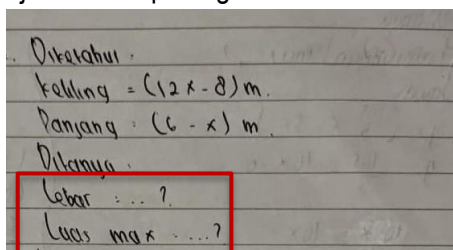 Diketahui :
Keliling = (12x - 8) m.
Panjang : (6 - x) m.
Ditanya :
Lebar : ... ?
Luas max ....?